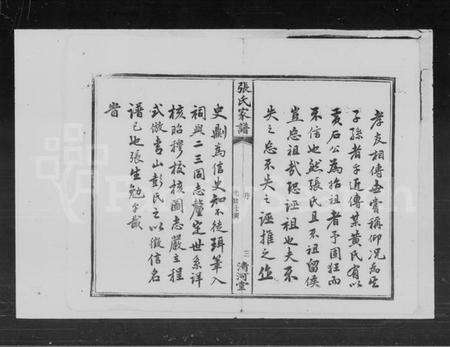 孝友相傳吾嘗稱仰況爲其
子孫者乎近傳某黃氏有以
黃石公爲始祖者予固狂而
不信也然張氏且不祖留侯
豈忘祖哉恐誣祖也夫不
失之忘不失之誣推之作
張氏家譜
三 清河堂
史剬爲信史知不徒珥筆入
祠與二三同志釐定世系詳
核昭穆校核圖志嚴立程
式倣眉山彭氏之以徵信名
譜已也張生勉乎哉
嘗